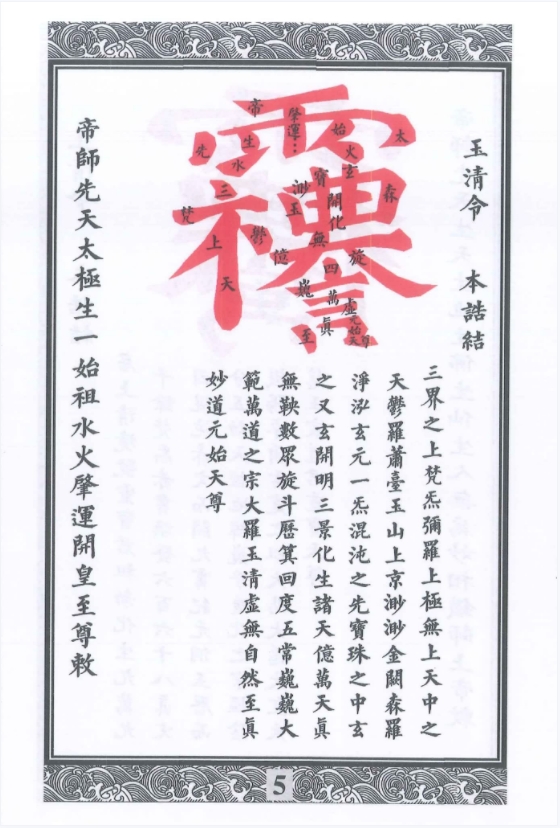 玉清令　本誥結
太
始
肇運…
帝
生
先
火玄
水
森
寶
渺
三
玉
梵
化
無
上
鬱
億
四
旋
天
巍
萬眞
虛
元始天尊
至
三界之上梵炁彌羅上極無上天中之
天鬱羅蕭臺玉山上京渺渺金闕森羅
淨泓玄元一炁混沌之先寶珠之中玄
之又玄開明三景化生諸天億萬天眞
無鞅數眾旋斗厯箕回度五常巍巍大
範萬道之宗大羅玉清虛無自然至眞
妙道元始天尊
帝師先天太極生一始祖水火肇運開皇至尊敕
5